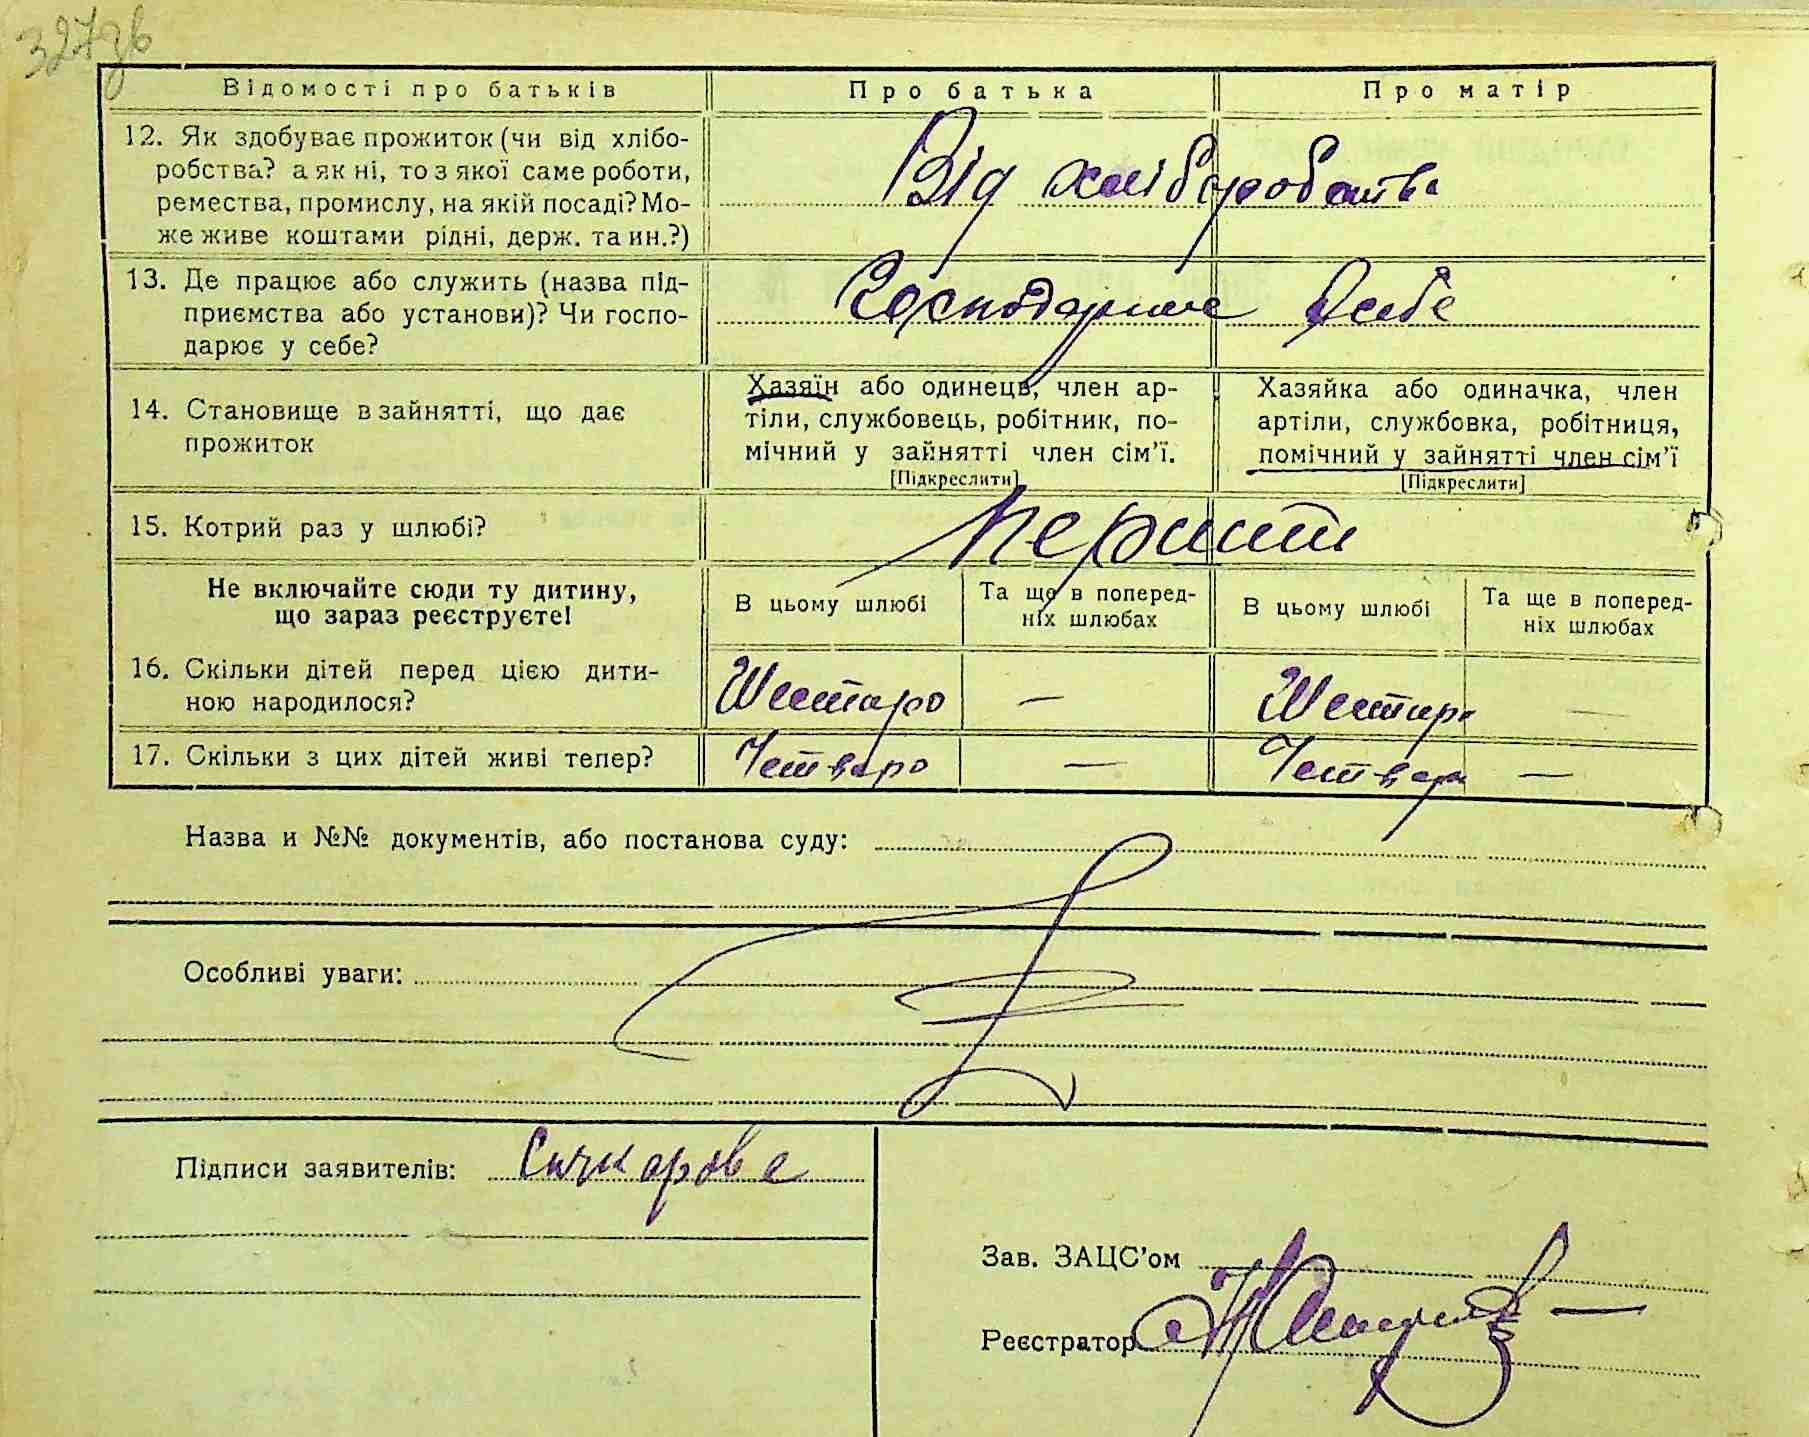 327зв
Відомості про батьків
Про батька
Про матір
12. Як здобуває прожиток (чи від хлібо-
робства? а як ні, то з якої саме роботи,
ремества, промислу, на якій посаді? Мо-
же живе коштами рідні, держ. та ин.?)
Від хліборобства
13. Де працює або служить (назва під-
приємства або установи)? Чи госпо-
дарює у себе?
Господарює у себе
14. Становище в зайнятті, що дає
прожиток
Хазяїн або одинець, член ар-
тіли, службовець, робітник, по-
мічний у зайнятті член сім'ї.
[Підкреслити]
Хазяйка або одиначка, член
артіли, службовка, робітниця,
помічний у зайнятті член сім'ї
[Підкреслити]
15. Котрий раз у шлюбі?
Не включайте сюди ту дитину,
що зараз реєструєте!
В цьому шлюбі
Та ще в поперед-
ніх шлюбах
В цьому шлюбі
Та ще в поперед-
ніх шлюбах
16. Скільки дітей перед цією дити-
ною народилося?
Шестаро —
Шестиро —
17. Скільки з цих дітей живі тепер?
Четверо —
Четверо —
Назва и №№ документів, або постанова суду:
Особливі уваги:
Підписи заявителів: Сичкарова
Зав. ЗАЦС'ом
Реєстратор